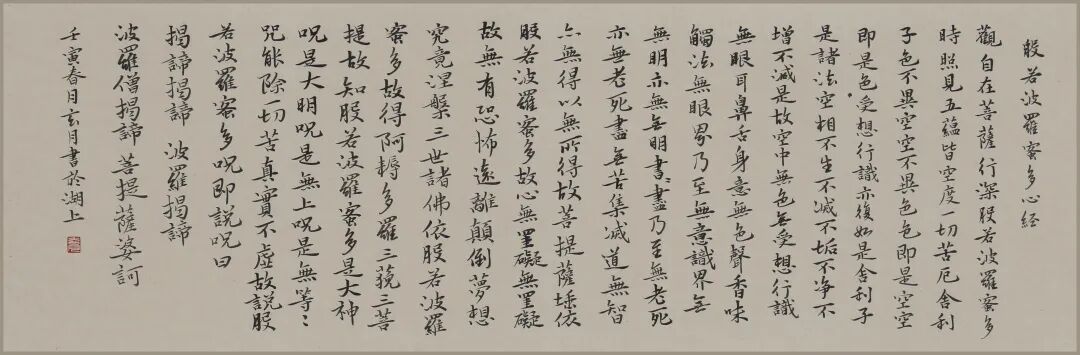 般若波羅蜜多心経
觀自在菩薩行深般若波羅蜜多
時照見五蘊皆空度一切苦厄舍利
子色不異空空不異色色即是空空
即是色受想行識亦復如是舍利子
是諸法空相不生不滅不垢不净不
增不減是故空中無色无受想行識
無眼耳鼻舌身意無色聲香味
觸法無眼界乃至無意識界无
無明亦無无明盡乃至無老死
亦無老死盡无苦集滅道無智
亦無得以無所得故菩提薩埵依
般若波羅蜜多故心無罣礙無罣礙
故無有恐怖遠離顛倒夢想
究竟涅槃三世諸佛依般若波羅
蜜多故得阿耨多羅三藐三菩
提故知般若波羅蜜多是大神
呪是大明呪是無上呪是無等〻
咒能除一切苦真實不虛故説般
若波羅蜜多呪即説呪曰
揭諦揭諦 波羅揭諦
波羅僧揭諦 菩提薩婆訶
壬寅春月玄月書於湖上